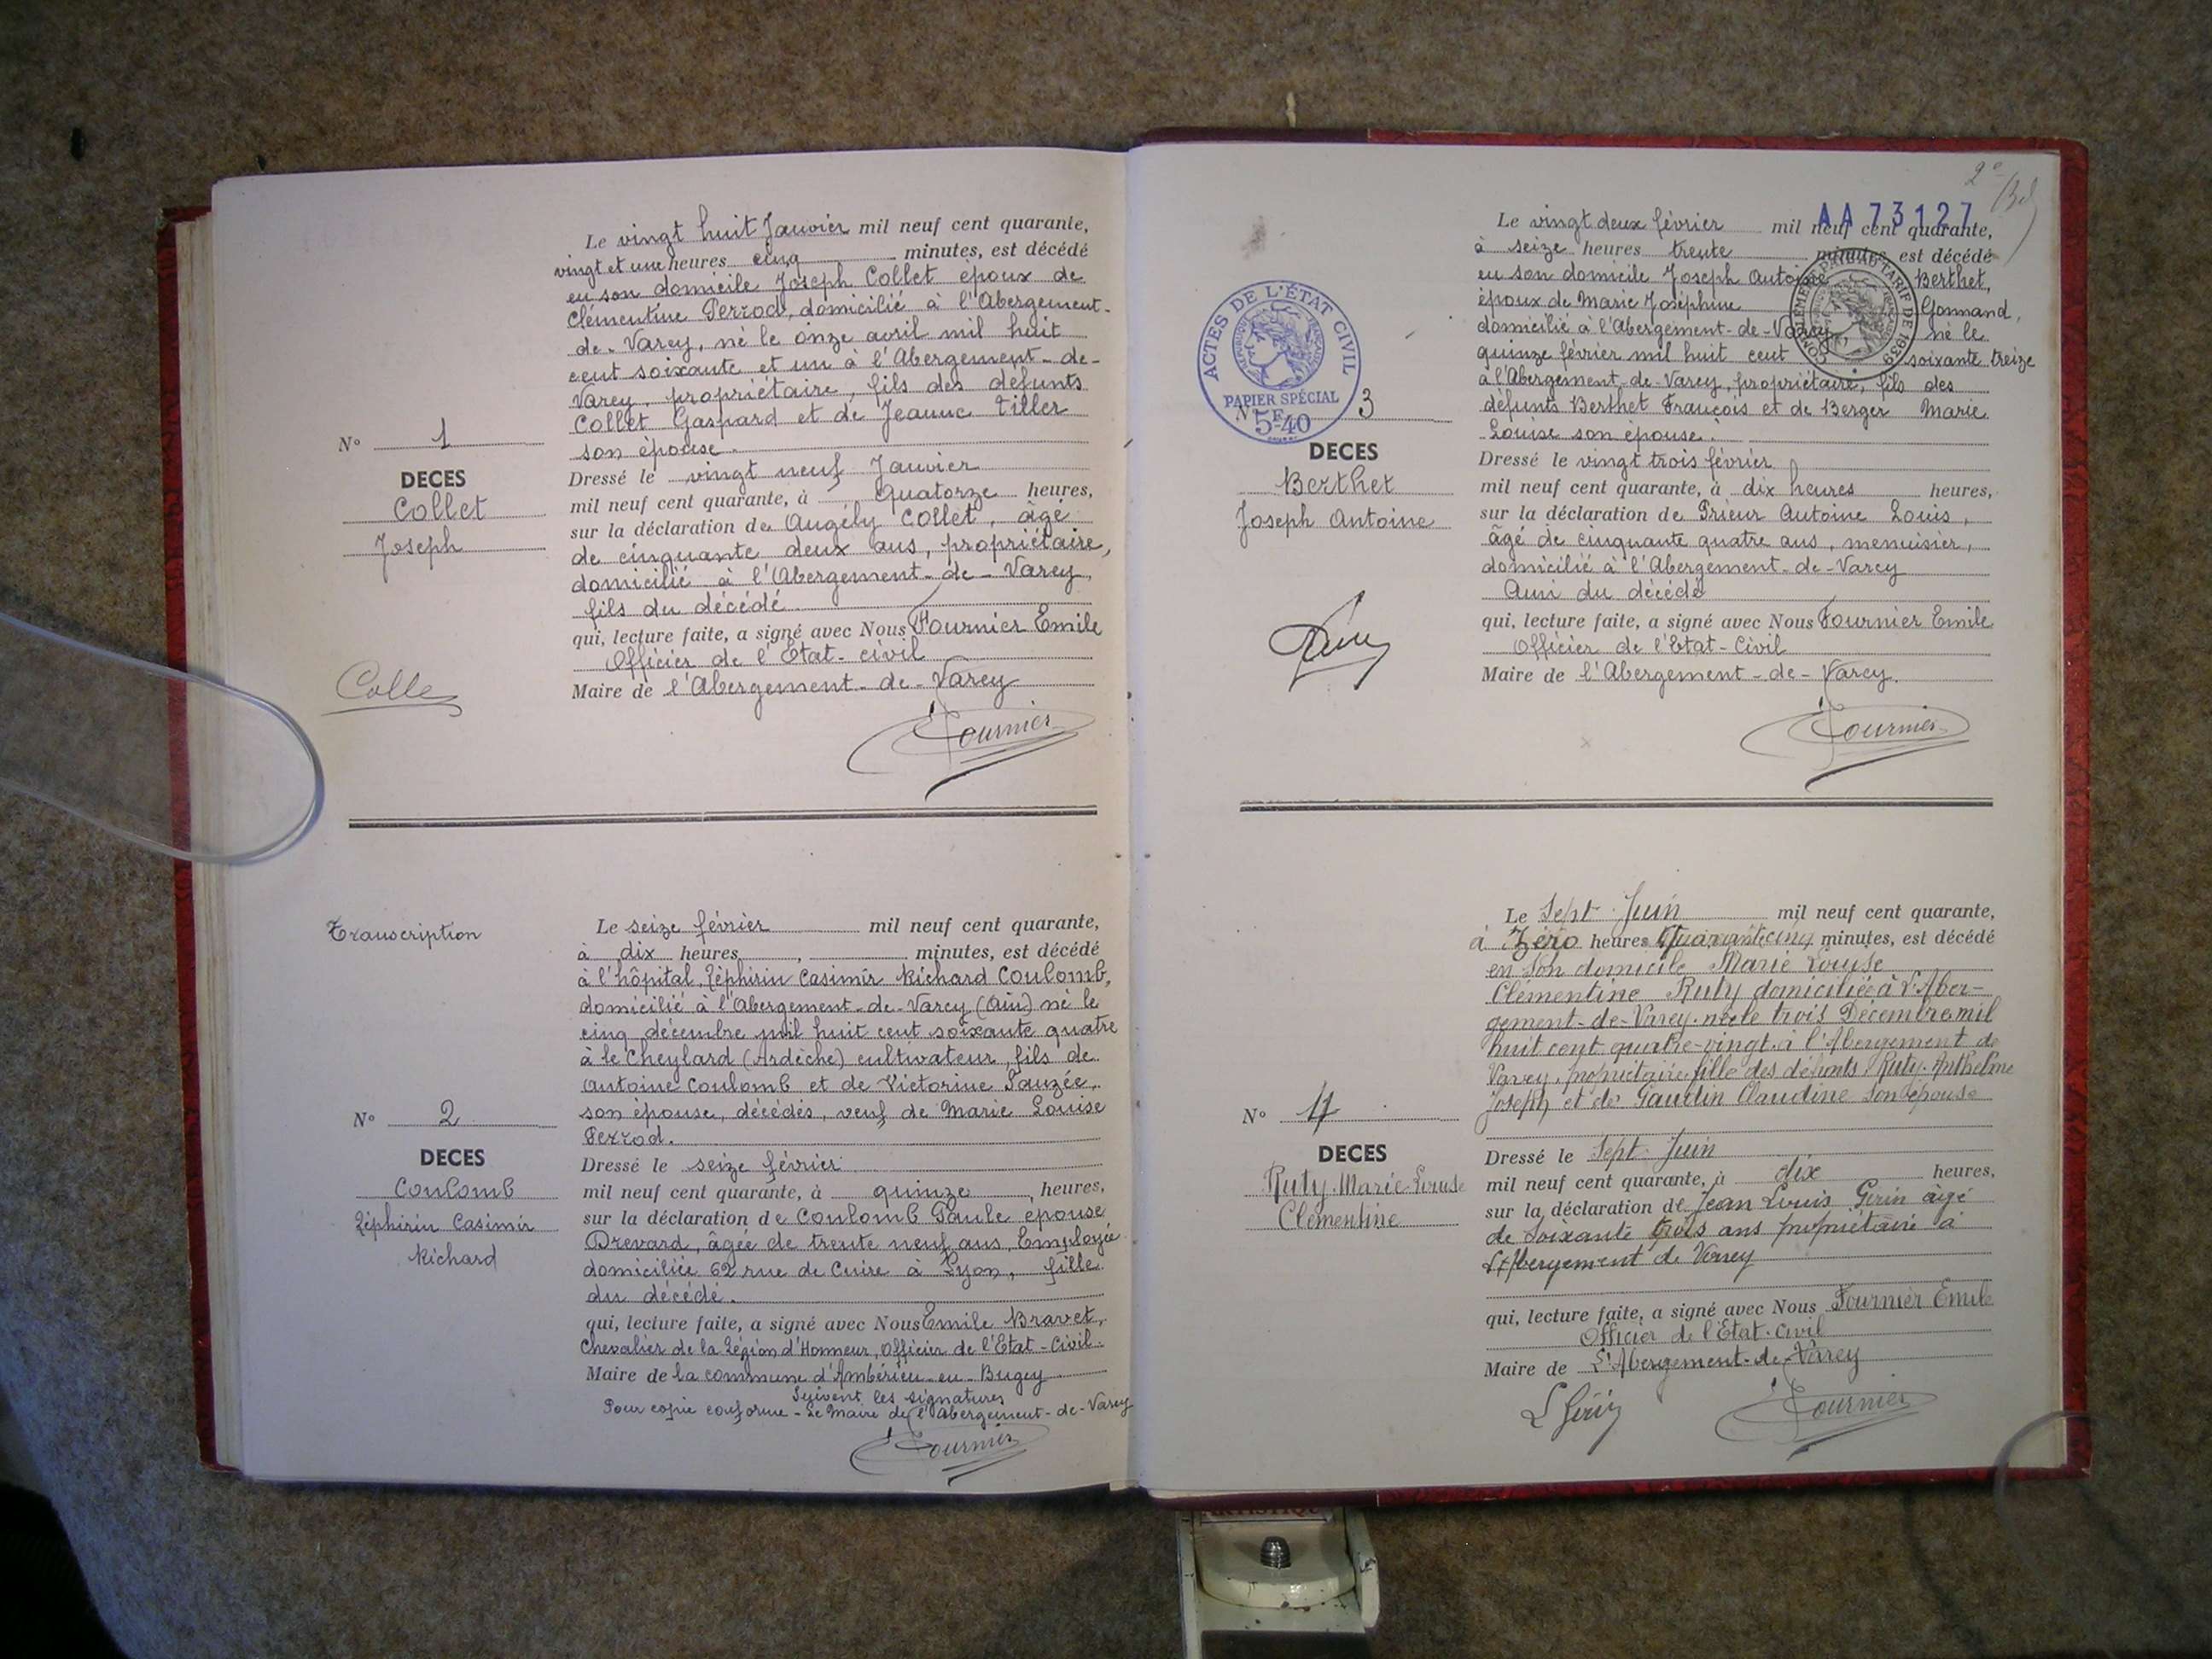 Le vingt huit Janvier mil neuf cent quarante,
vingt et une heures cinq minutes, est décédé
en son domicile Joseph Collet époux de
Clémentine Perrod, domicilié à l'Abergement-
de-Varey, né le onze avril mil huit
cent soixante et un à l'Abergement-de-
Varey, propriétaire, fils des défunts
Collet Gaspard et de Jeanne Tiller
son épouse.
N° 1
DECES
Collet
Joseph
Dressé le vingt neuf Janvier
mil neuf cent quarante, à quatorze heures,
sur la déclaration de Angély Collet, âgé
de cinquante deux ans, propriétaire,
domicilié à l'Abergement-de-Varey,
fils du décédé
qui, lecture faite, a signé avec Nous Fournier Emile
Officier de l'Etat-civil
Maire de l'Abergement-de-Varey
Collet
Fournier
Transcription
Le seize février mil neuf cent quarante,
à dix heures, minutes, est décédé
à l'hôpital, Zéphirin Casimir Richard Coulomb,
domicilié à l'Abergement-de-Varey (Ain) né le
cinq décembre mil huit cent soixante quatre
à le Cheylard (Ardèche) cultivateur, fils de
Antoine Coulomb et de Victorine Pauzée,
son épouse, décédés, veuf de Marie Louise
Perrod.
N° 2
DECES
Coulomb
Zéphirin Casimir
Richard
Dressé le seize février
mil neuf cent quarante, à quinze, heures,
sur la déclaration de Coulomb Paule épouse
Drevard, âgée de trente neuf ans, Employée
domiciliée 62 rue de Cuire à Lyon, fille
du décédé.
qui, lecture faite, a signé avec Nous Emile Bravet,
Chevalier de la Légion d'Honneur, Officier de l'Etat-Civil.
Maire de la commune d'Ambérieu-en-Bugey
Suivent les signatures
Pour copie conforme - Le Maire de l'Abergement-de-Varey
Fournier
2e
AA 73127
Le vingt deux février mil neuf cent quarante,
à seize heures trente minutes, est décédé
en son domicile Joseph Antoine Berthet,
époux de Marie Joséphine Gonnand,
domicilié à l'Abergement-de-Varey né le
quinze février mil huit cent soixante treize
à l'Abergement-de-Varey, propriétaire, fils des
défunts Berthet François et de Berger Marie
Louise son épouse.
COMPLÉMENT TARIF DE 1939
ACTES DE L'ÉTAT CIVIL
RÉPUBLIQUE FRANÇAISE
PAPIER SPÉCIAL
5F.40
N° 3
DECES
Berthet
Joseph Antoine
Dressé le vingt trois février
mil neuf cent quarante, à dix heures heures,
sur la déclaration de Prieur Antoine Louis,
âgé de cinquante quatre ans, menuisier,
domicilié à l'Abergement-de-Varey
Ami du décédé
qui, lecture faite, a signé avec Nous Fournier Emile
Officier de l'Etat-Civil
Maire de l'Abergement-de-Varey.
Fournier
Le Sept Juin mil neuf cent quarante,
à Zéro heures Quarante cinq minutes, est décédé
en son domicile Marie Louise
Clémentine Ruty domiciliée à l'Aber-
gement-de-Varey. née le trois Décembre mil
huit cent quatre-vingt. à l'Abergement de
Varey, propriétaire fille des défunts Ruty Anthelme
Joseph et de Gaudin Claudine son épouse
N° 4
DECES
Ruty Marie-Louise
Clémentine
Dressé le Sept Juin
mil neuf cent quarante, à dix heures,
sur la déclaration de Jean Louis Gérin âgé
de Soixante trois ans propriétaire à
L'Abergement de Varey
qui, lecture faite, a signé avec Nous Fournier Emile
Officier de l'Etat-Civil
Maire de L'Abergement-de-Varey
L Gérin
Fournier